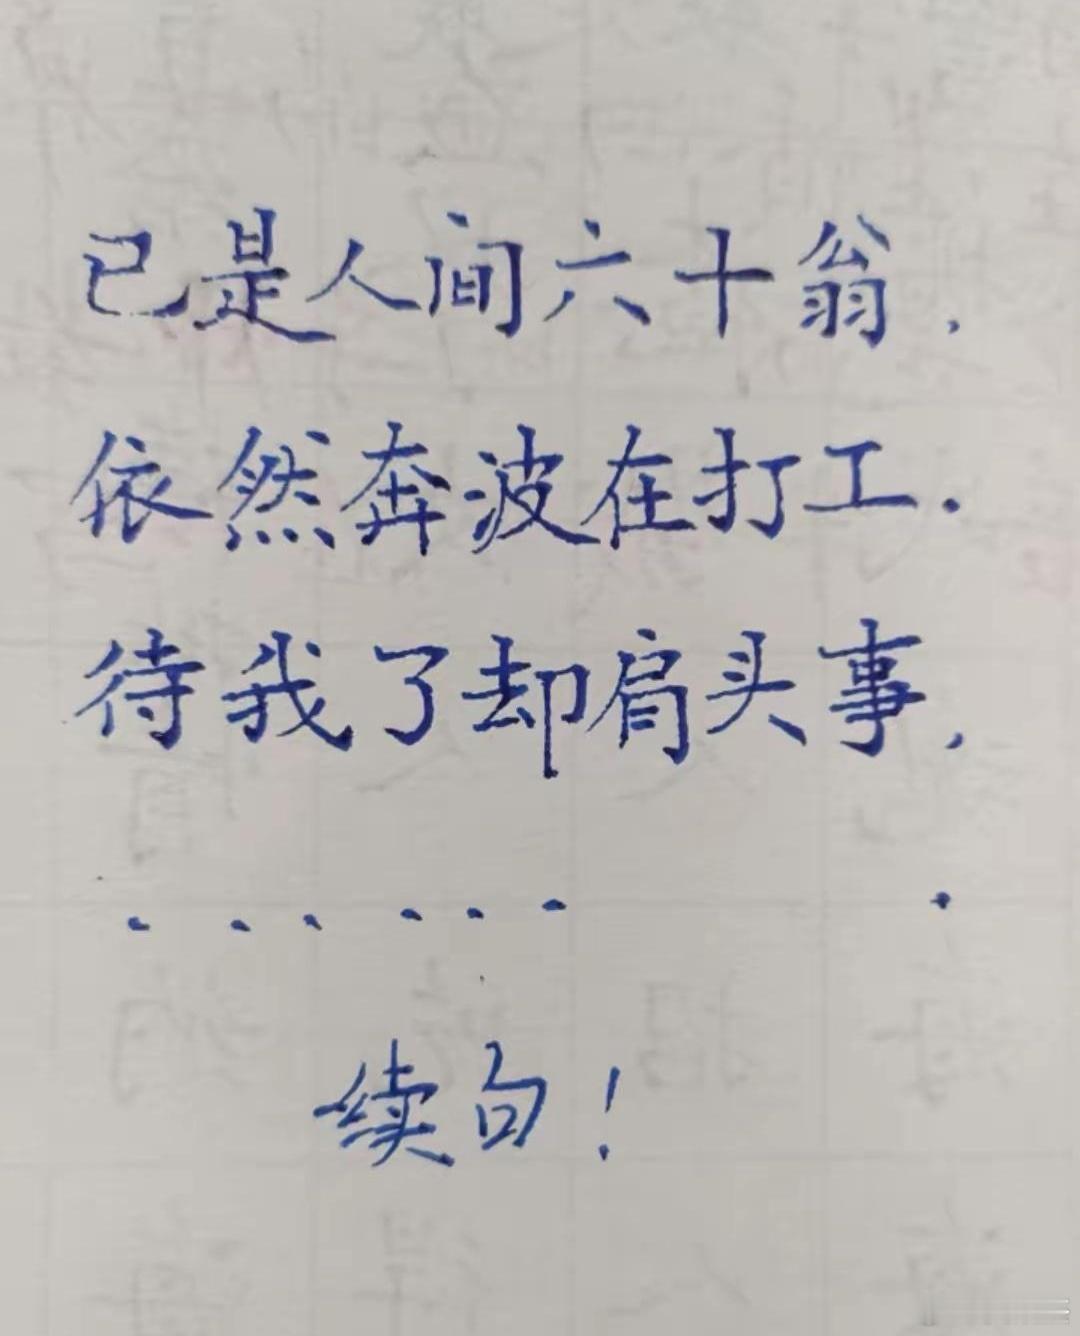 已是人间六十翁，
依然奔波在打工.
待我了却肩头事，
. . . . . . .
续句！